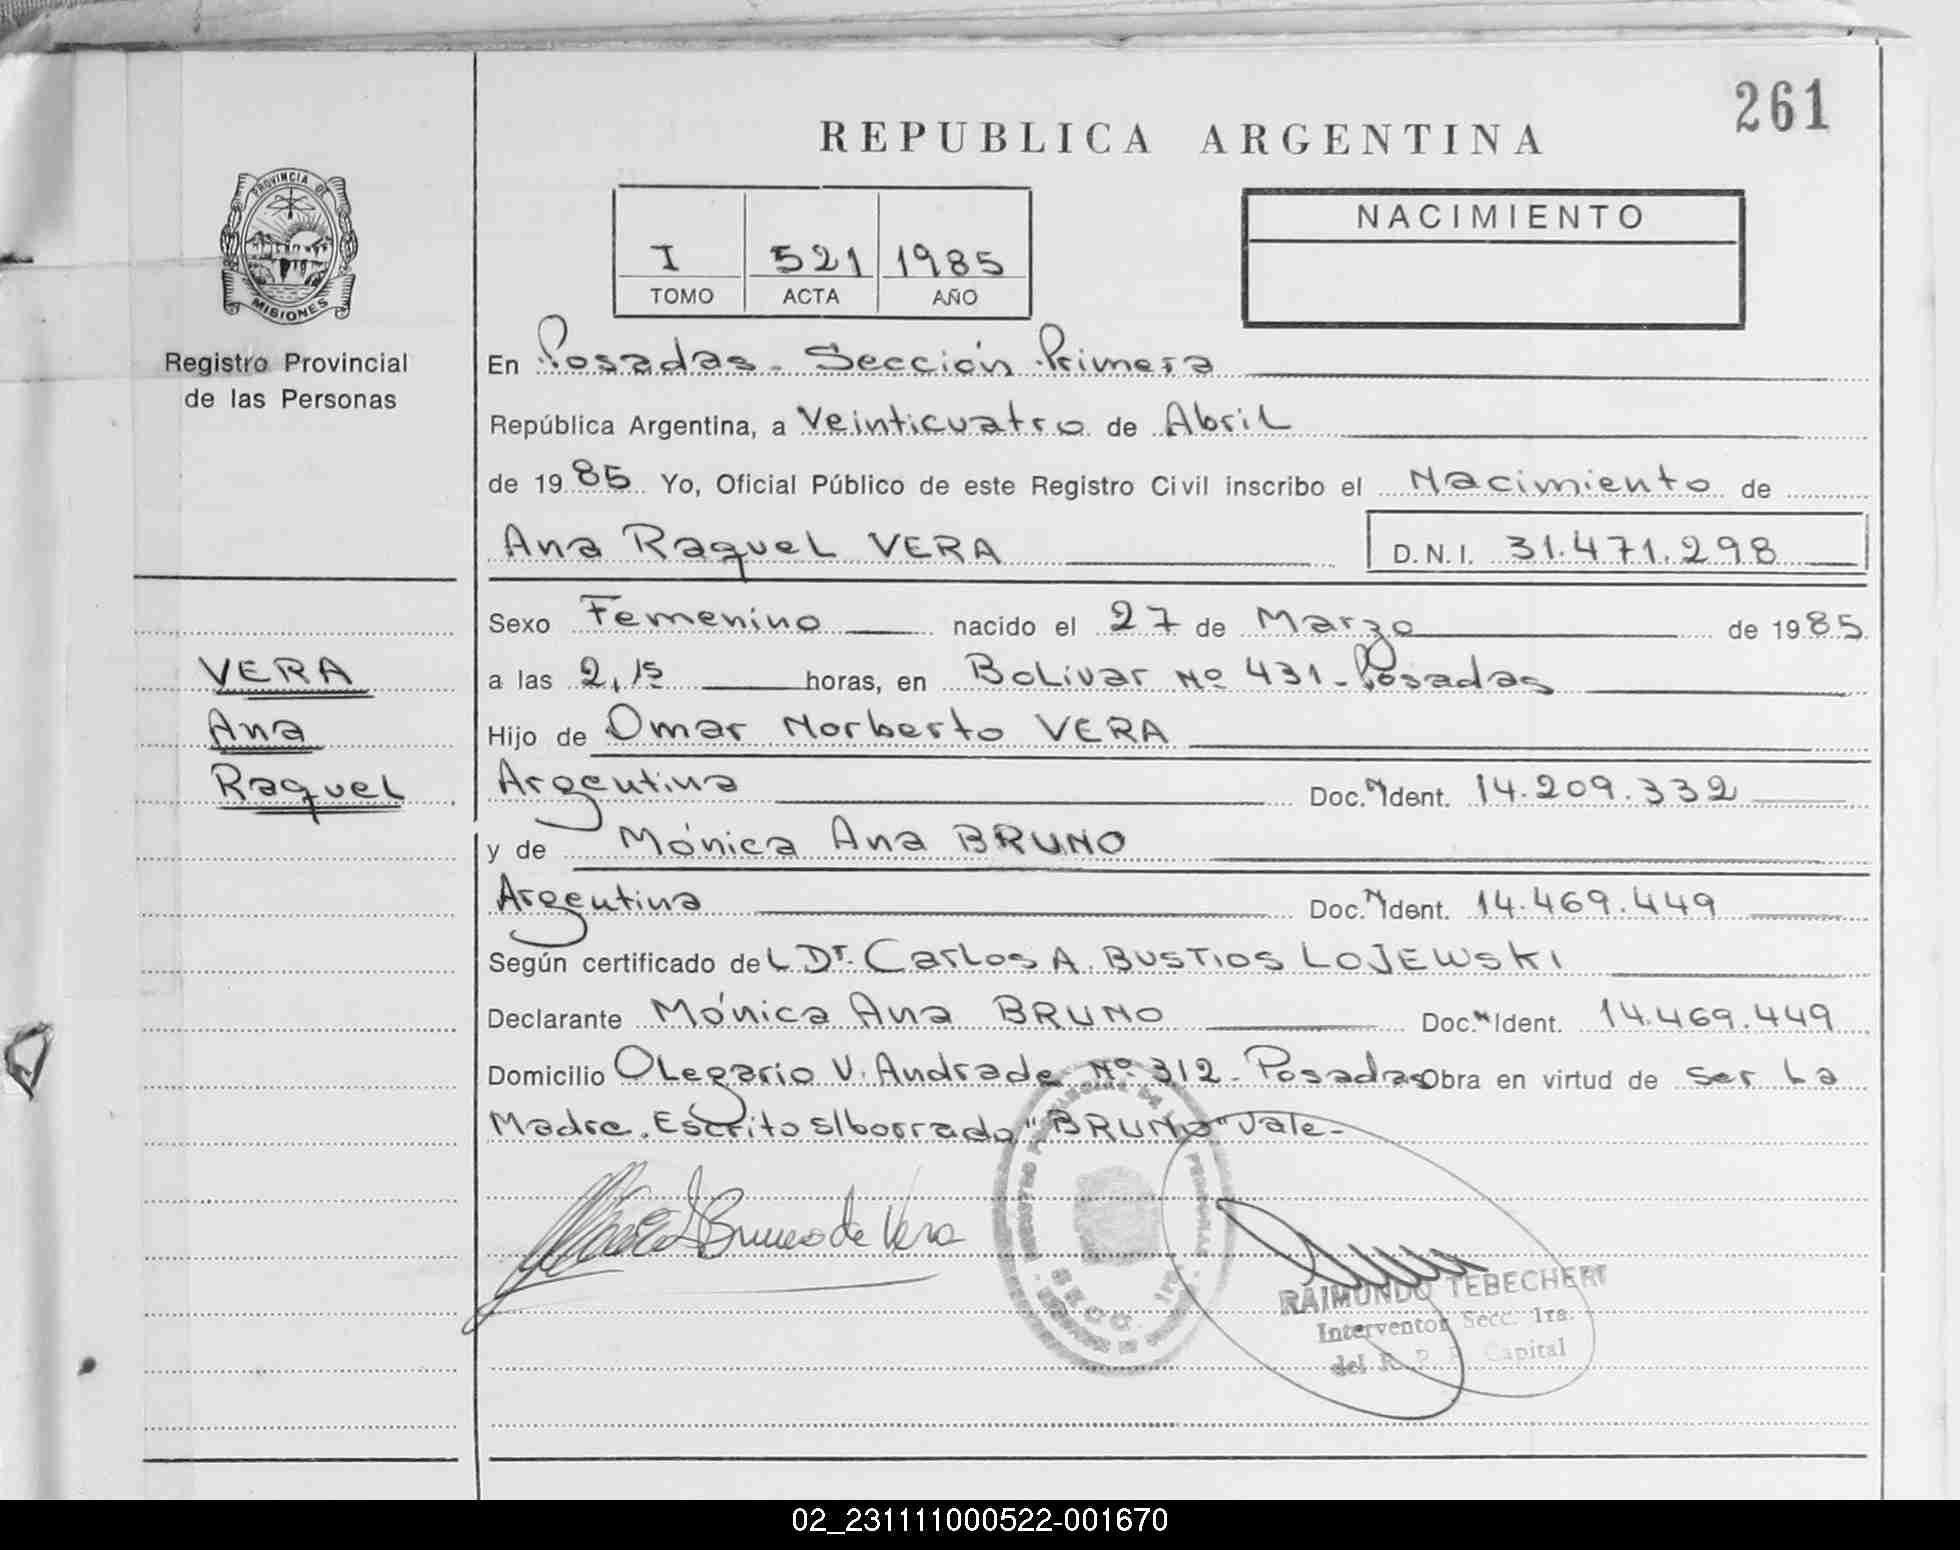 261
REPUBLICA ARGENTINA
PROVINCIA DE
MISIONES
Registro Provincial
de las Personas
I 521 1985
TOMO ACTA AÑO
NACIMIENTO
En Posadas. Sección Primera
República Argentina, a Veinticuatro de Abril
de 1985 Yo, Oficial Público de este Registro Civil inscribo el Nacimiento de
Ana Raquel VERA D.N.I. 31.471.298
Sexo Femenino nacido el 27 de Marzo de 1985
VERA
Ana
Raquel
a las 2,15 horas, en Bolívar Nº 431-Posadas
Hijo de Omar Norberto VERA
Argentina Doc. Ident. 14.209.332
y de Mónica Ana BRUNO
Argentina Doc. Ident. 14.469.449
Según certificado del Dr. Carlos A. BUSTIOS LOJEWSKI
Declarante Mónica Ana BRUNO Doc. Ident. 14.469.449
Domicilio Olegario V. Andrade Nº 312- Posadas Obra en virtud de ser la
Madre. Escrito s/borrado "BRUNO" Vale-
Bruno de Vera
SECC. 1ra.
RAIMUNDO TEBECHERI
Interventor Secc. 1ra.
del R. P. P. Capital
02_231111000522-001670